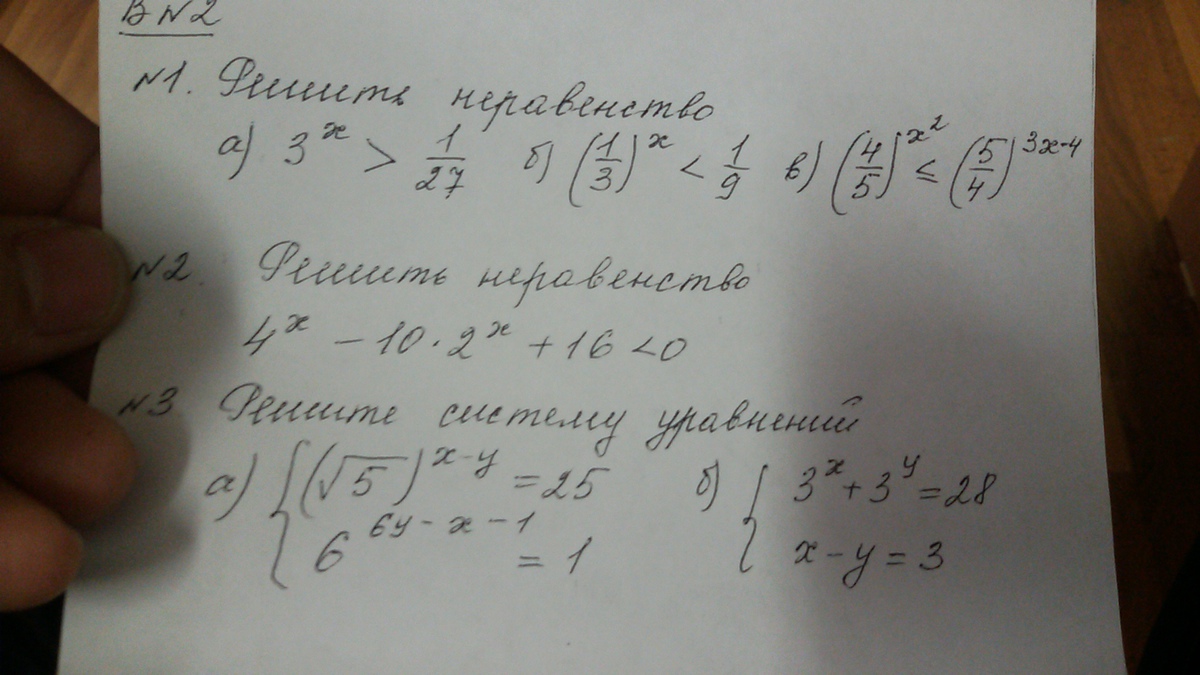 В№2
№1. Решить неравенство
а) 3^x > 1/27 б) (1/3)^x < 1/9 в) (4/5)^x² ≤ (5/4)^3x-4
№2. Решить неравенство
4^x - 10·2^x + 16 < 0
№3 Решите систему уравнений
а) { (√5)^x-y = 25 б) { 3^x + 3^y = 28
6^6y-x-1 = 1 x - y = 3